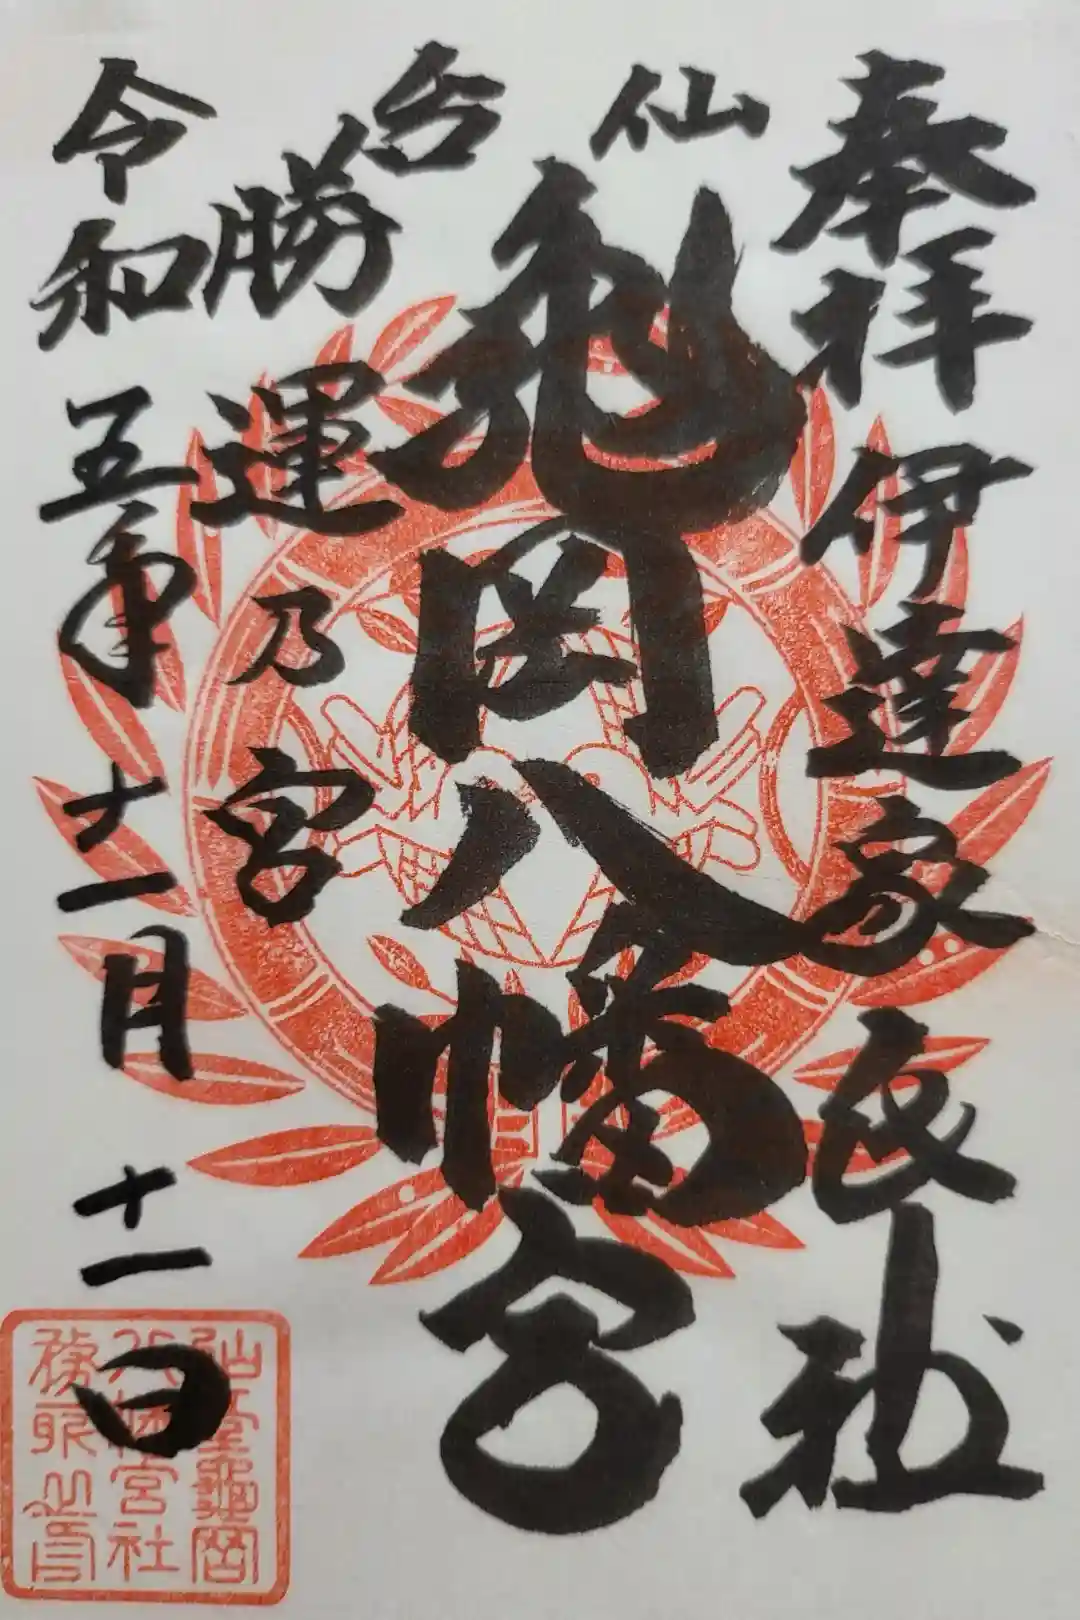 奉拝 伊達家氏社
仙台
亀岡八幡宮
勝運乃宮
令和五年十一月十一日
仙台龜岡
八幡宮社
務所之印